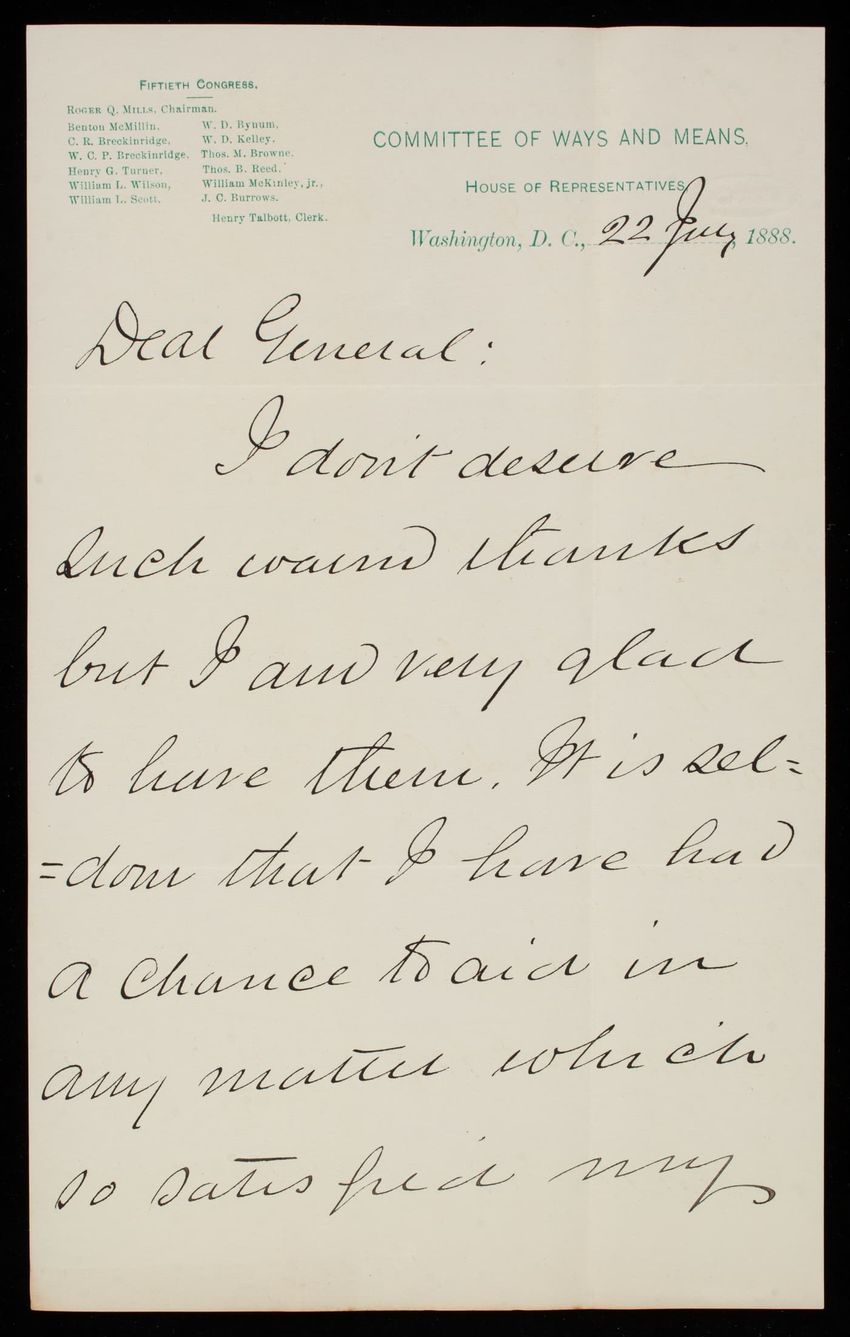 FIFTIETH CONGRESS.
ROGER Q. MILLS, Chairman.
Benton McMillin, W. D. Bynum,
C. R. Breckinridge, W. D. Kelley,
W. C. P. Breckinridge, Thos. M. Browne,
Henry G. Turner, Thos. B. Reed,
William L. Wilson, William McKinley, jr.,
William L. Scott, J. C. Burrows.
Henry Talbott, Clerk.
COMMITTEE OF WAYS AND MEANS,
HOUSE OF REPRESENTATIVES,
Washington, D. C., 22 July, 1888.
Dear General:
I don't deserve
such warm thanks
but I am very glad
to have them. It is sel=
=dom that I have had
a chance to aid in
any matter which
so satisfied my